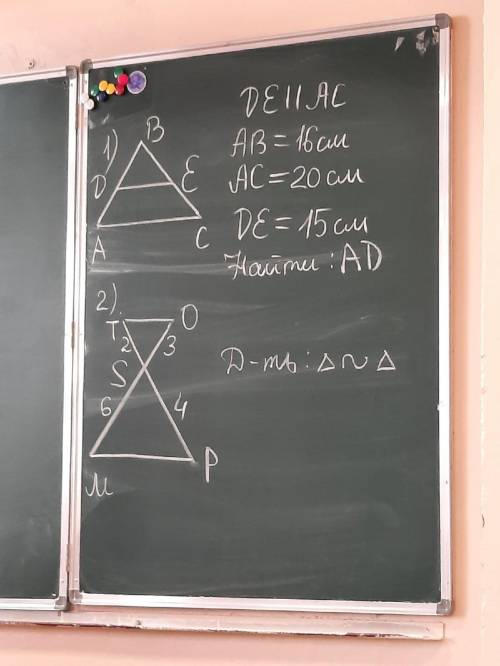 1)
B
D
E
A
C
DE||AC
AB=16см
AC=20см
DE=15см
Найти: AD
2)
T
O
2
3
S
6
4
M
P
Д-ть: Δ ~ Δ